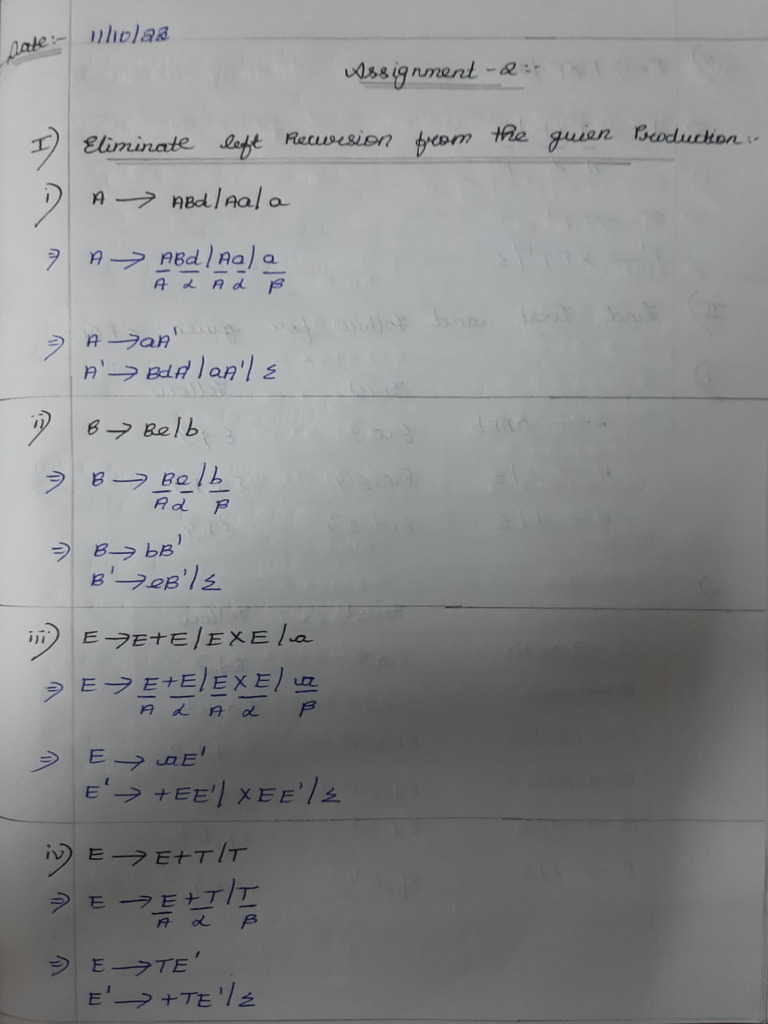 Date:- 11/10/22
Assignment-2:-
I) Eliminate left Recursion from the guien Production:-
i) A → ABd/Aa/a
⇒ A → ABd/Aa/a
A α A α β
⇒ A → aA'
A' → BdA'/aA'/Σ
ii) B → Be/b
⇒ B → Be/b
A α β
⇒ B → bB'
B' → eB'/Σ
iii) E → E+E/E×E/a
⇒ E → E+E/E×E/a
A α A α β
⇒ E → aE'
E' → +EE'/×EE'/Σ
iv) E → E+T/T
⇒ E → E+T/T
A α β
⇒ E → TE'
E' → +TE'/Σ